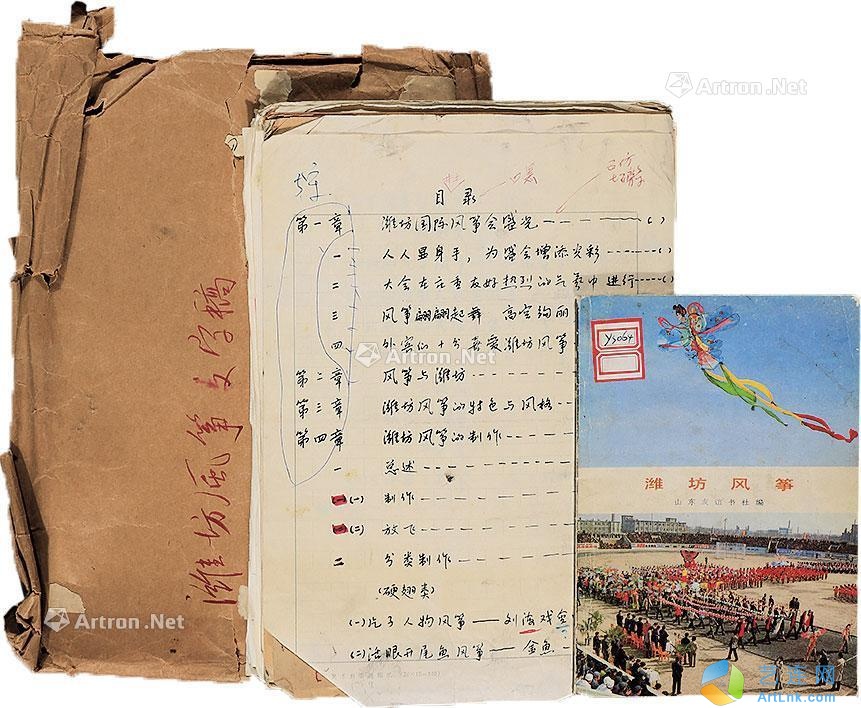 Artron.Net
潍坊风筝文字稿
Artron.Net
目录
第一章 潍坊国际风筝会盛况 ( )
一 人人显身手,为盛会增添光彩 ( )
二 大会在庄重友好热烈的气氛中进行 ( )
三 风筝翩翩起舞 高空绚丽
四 外宾们十分喜爱潍坊风筝
Artron.Net
第二章 风筝与潍坊
第三章 潍坊风筝的特色与风格
第四章 潍坊风筝的制作
一 总述
(一) 制作
(二) 放飞
二 分类制作
(硬翅类)
(一)片子人物风筝——刘海戏金
(二)活眼开尾鱼风筝——金鱼
YS064
潍坊风筝
山东友谊书社编
Artron.Net
艺客网
ArtLnk.com